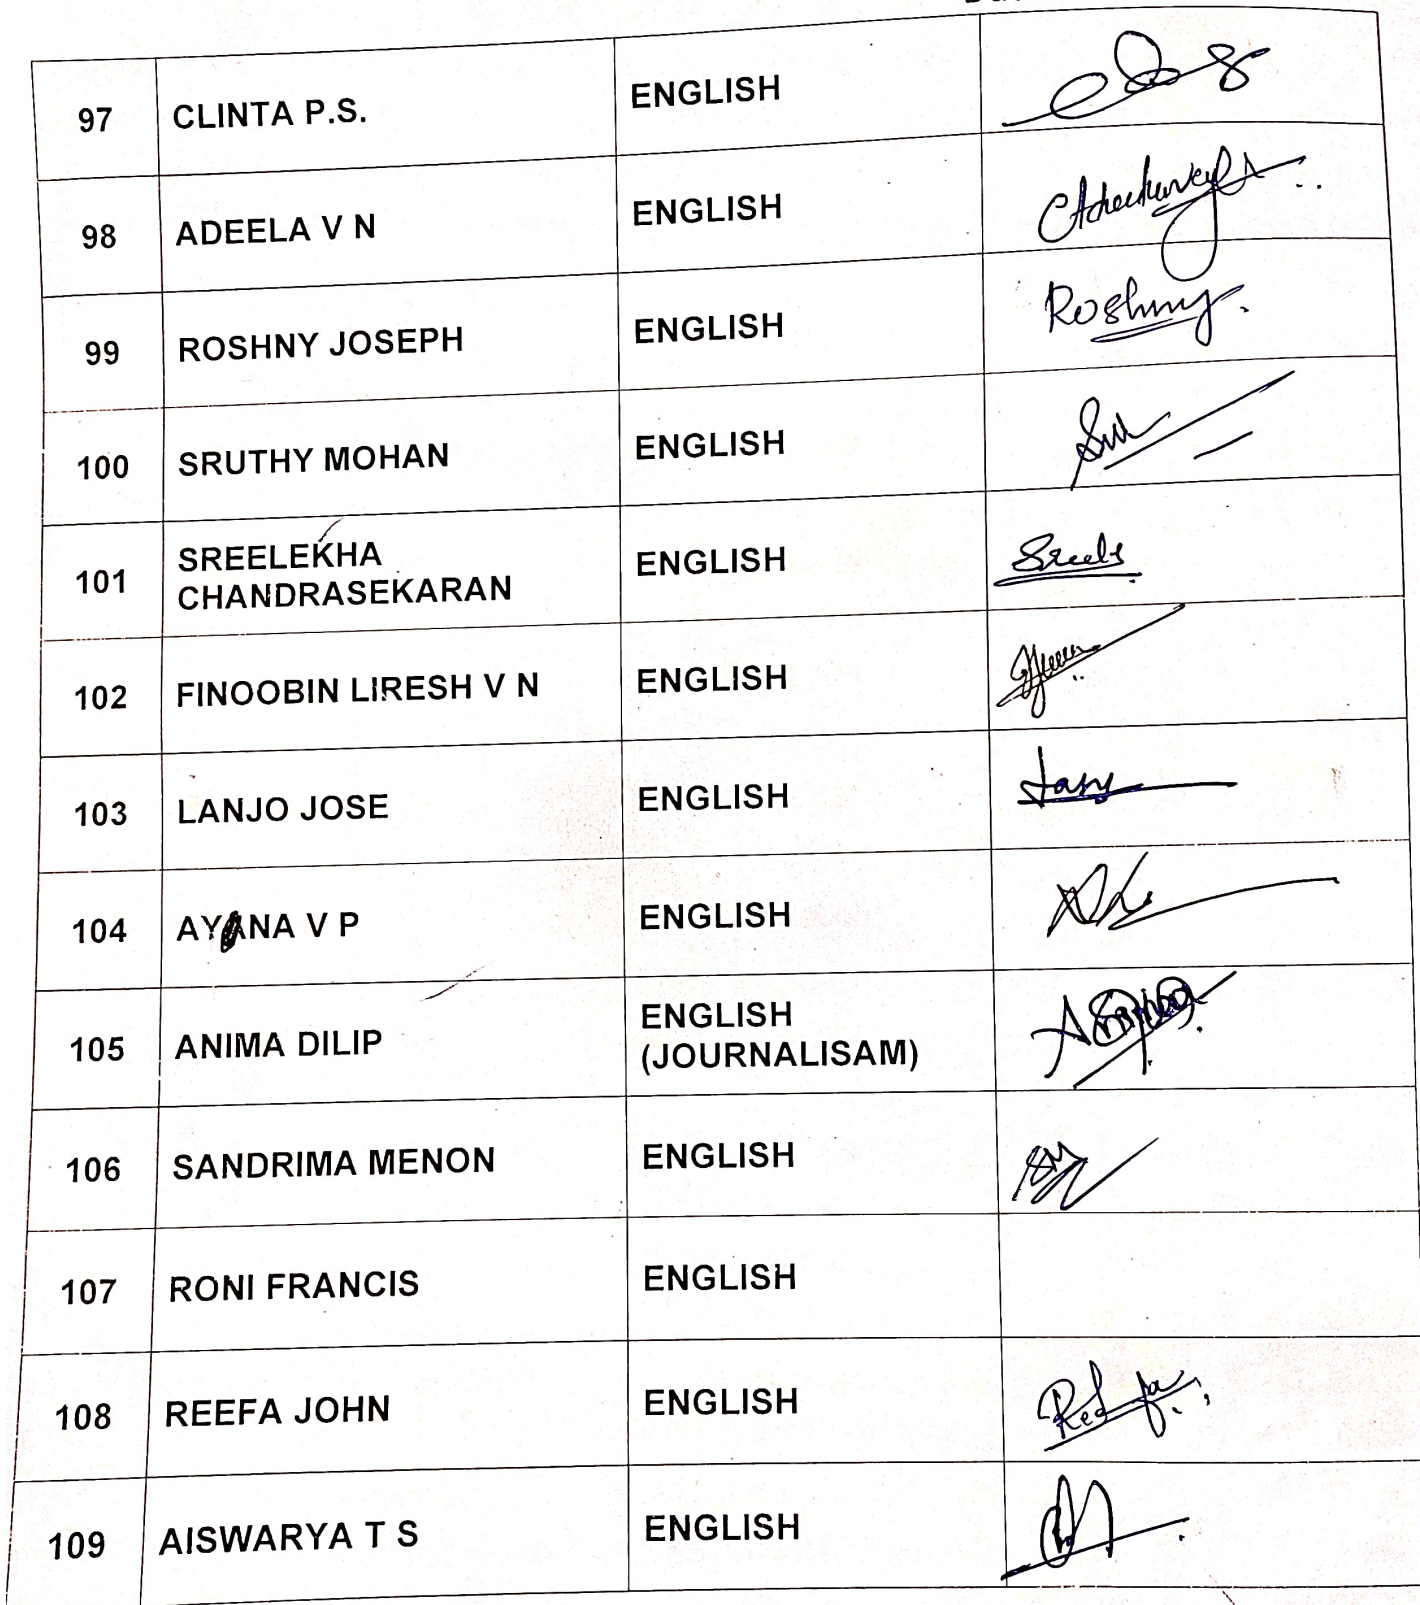 97 CLINTA P.S. ENGLISH
98 ADEELA V N ENGLISH
99 ROSHNY JOSEPH ENGLISH Roshny.
100 SRUTHY MOHAN ENGLISH
101 SREELEKHA CHANDRASEKARAN ENGLISH
102 FINOOBIN LIRESH V N ENGLISH
103 LANJO JOSE ENGLISH
104 AYANA V P ENGLISH
105 ANIMA DILIP ENGLISH (JOURNALISAM)
106 SANDRIMA MENON ENGLISH
107 RONI FRANCIS ENGLISH
108 REEFA JOHN ENGLISH
109 AISWARYA T S ENGLISH